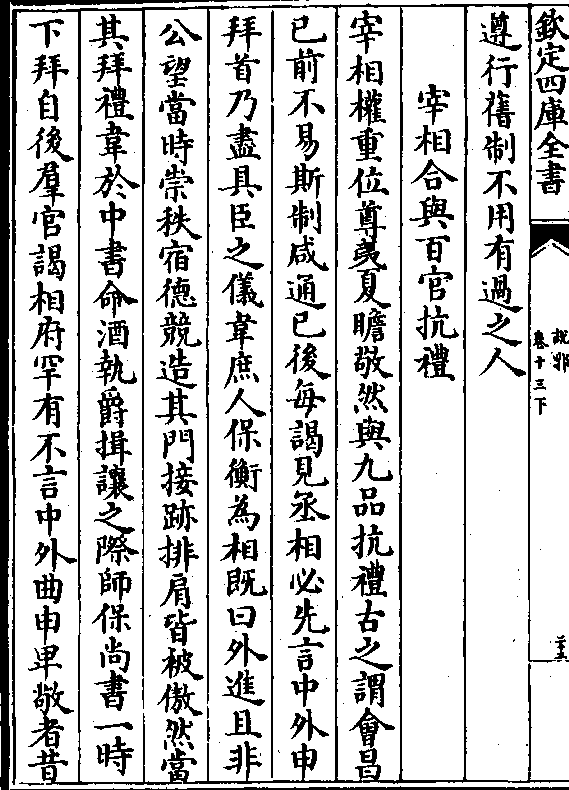 欽定四庫全書
說郛
卷十三下
二十三
遵行舊制不用有過之人
宰相合與百官抗禮
宰相權重位尊夷夏瞻敬然與九品抗禮古之謂會昌
已前不易斯制咸通已後每謁見丞相必先言中外申
拜首乃盡具臣之儀韋庶人保衡為相既曰外進且非
公望當時崇秩宿德競造其門接跡排肩皆被傲然當
其拜禮韋於中書命酒執爵揖讓之際師保尚書一時
下拜自後羣官謁相府罕有不言中外曲申卑敬者昔